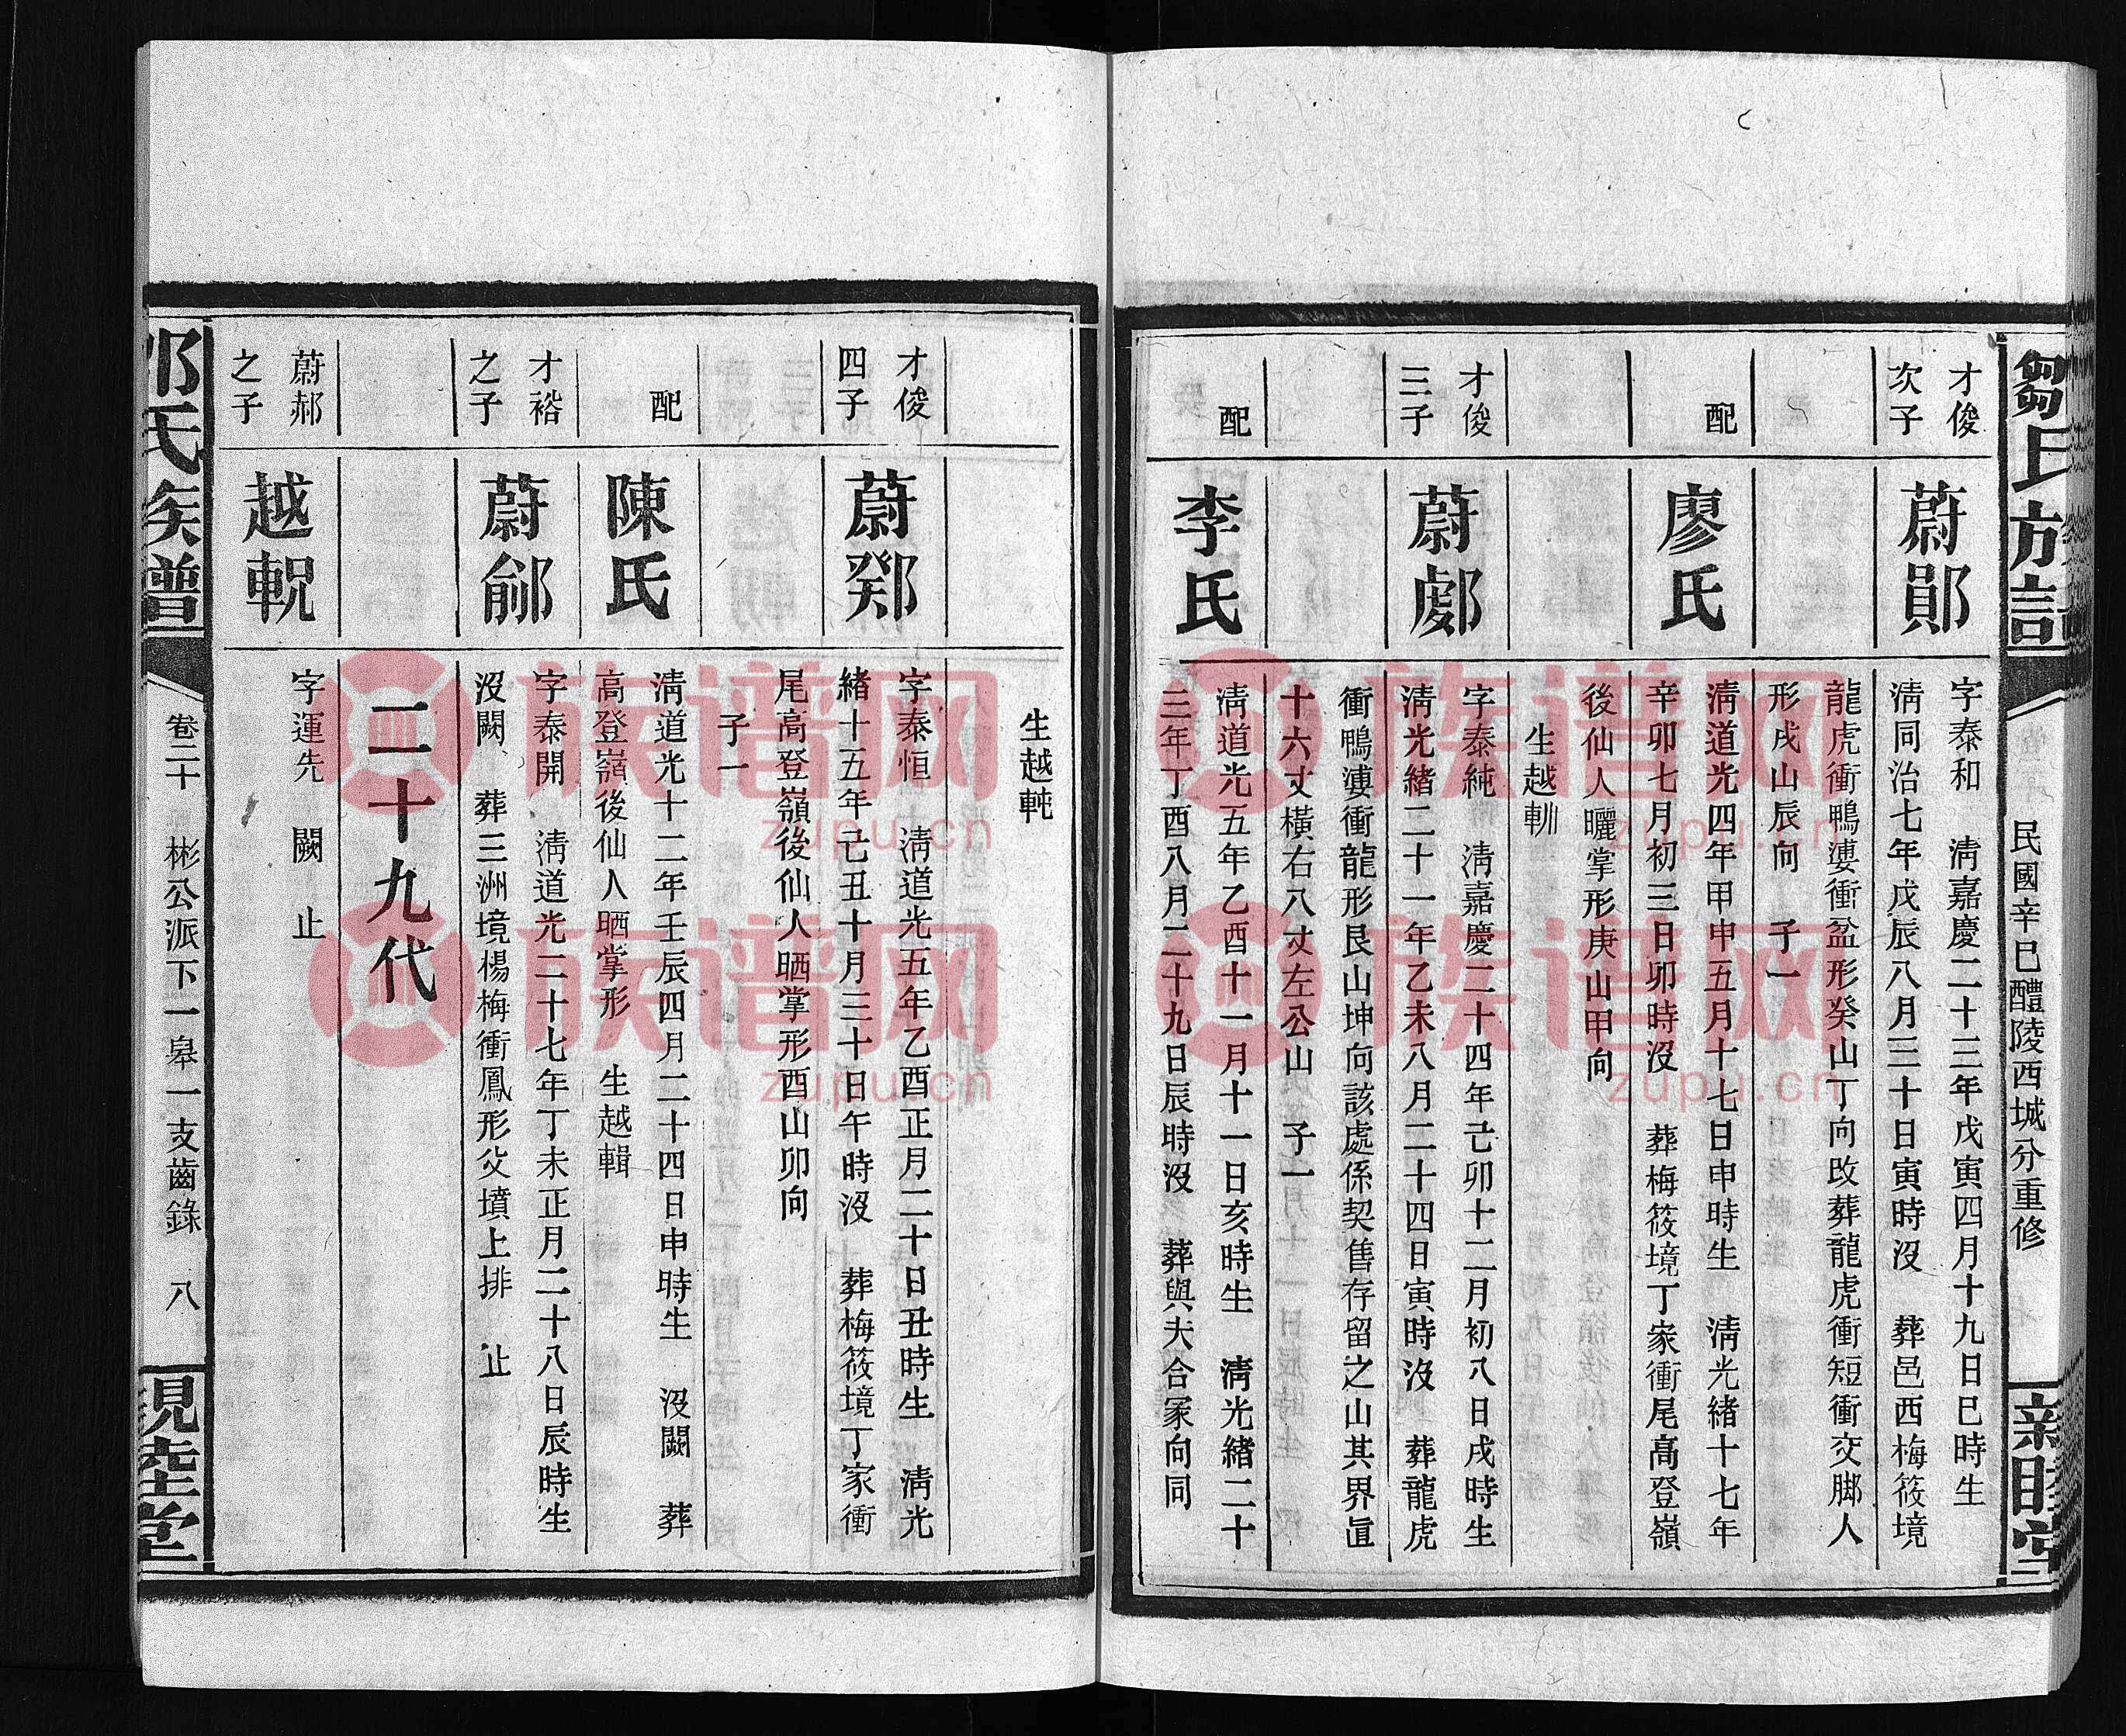 鄒氏族譜
民國辛巳醴陵西城分重修
才俊
次子
蔚鄖
字泰和 淸嘉慶二十三年戊寅四月十九日巳時生
淸同治七年戊辰八月三十日寅時沒 葬邑西梅筱境
龍虎衝鴨漊衝盆形癸山丁向改葬龍虎衝短衝交脚人
形戌山辰向 子一
配
廖氏
淸道光四年甲申五月十七日申時生 淸光緖十七年
辛卯七月初三日卯時沒 葬梅筱境丁家衝尾高登嶺
後仙人曬掌形庚山甲向
生越軐
才俊
三子
蔚鄺
字泰純 淸嘉慶二十四年己卯十二月初八日戌時生
淸光緖二十一年乙未八月二十四日寅時沒 葬龍虎
衝鴨漊衝龍形艮山坤向該處係契售存留之山其界直
十六丈橫右八丈左公山 子一
配
李氏
淸道光五年乙酉十一月十一日亥時生 淸光緖二十
三年丁酉八月二十九日辰時沒 葬與夫合冢向同
生越軘
才俊
四子
蔚鄈
字泰恒 淸道光五年乙酉正月二十日丑時生 淸光
緖十五年己丑十月三十日午時沒 葬梅筱境丁家衝
尾高登嶺後仙人晒掌形酉山卯向
子一
配
陳氏
淸道光十二年壬辰四月二十四日申時生 沒闕 葬
高登嶺後仙人晒掌形 生越輯
才裕
之子
蔚鄃
字泰開 淸道光二十七年丁未正月二十八日辰時生
沒闕 葬三洲境楊梅衝鳳形父墳上排 止
二十九代
蔚郝
之子
越軦
字運先 闕 止
氏族譜
卷二十 彬公派下一皋一支齒錄 八
睦堂
族谱网
zupu.cn
族谱网
zupu.cn
族谱网
zupu.cn
族谱网
zupu.cn